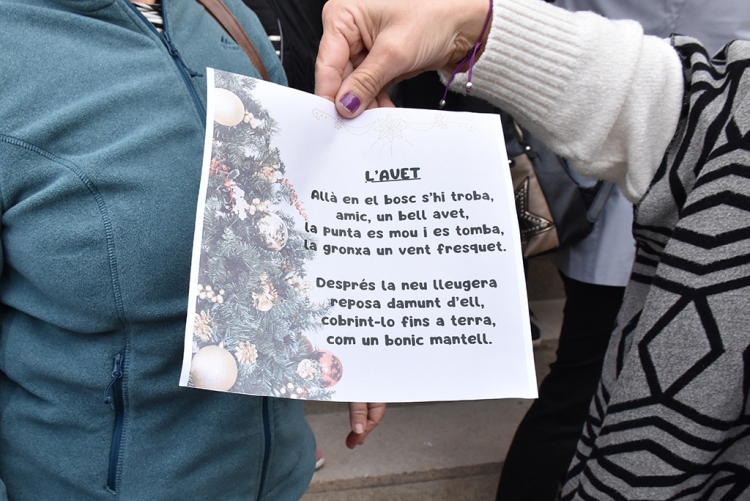 L'AVET
Allà en el bosc s'hi troba,
amic, un bell avet,
la punta es mou i es tomba,
la gronxa un vent fresquet.
Després la neu lleugera
reposa damunt d'ell,
cobrint-lo fins a terra,
com un bonic mantell.